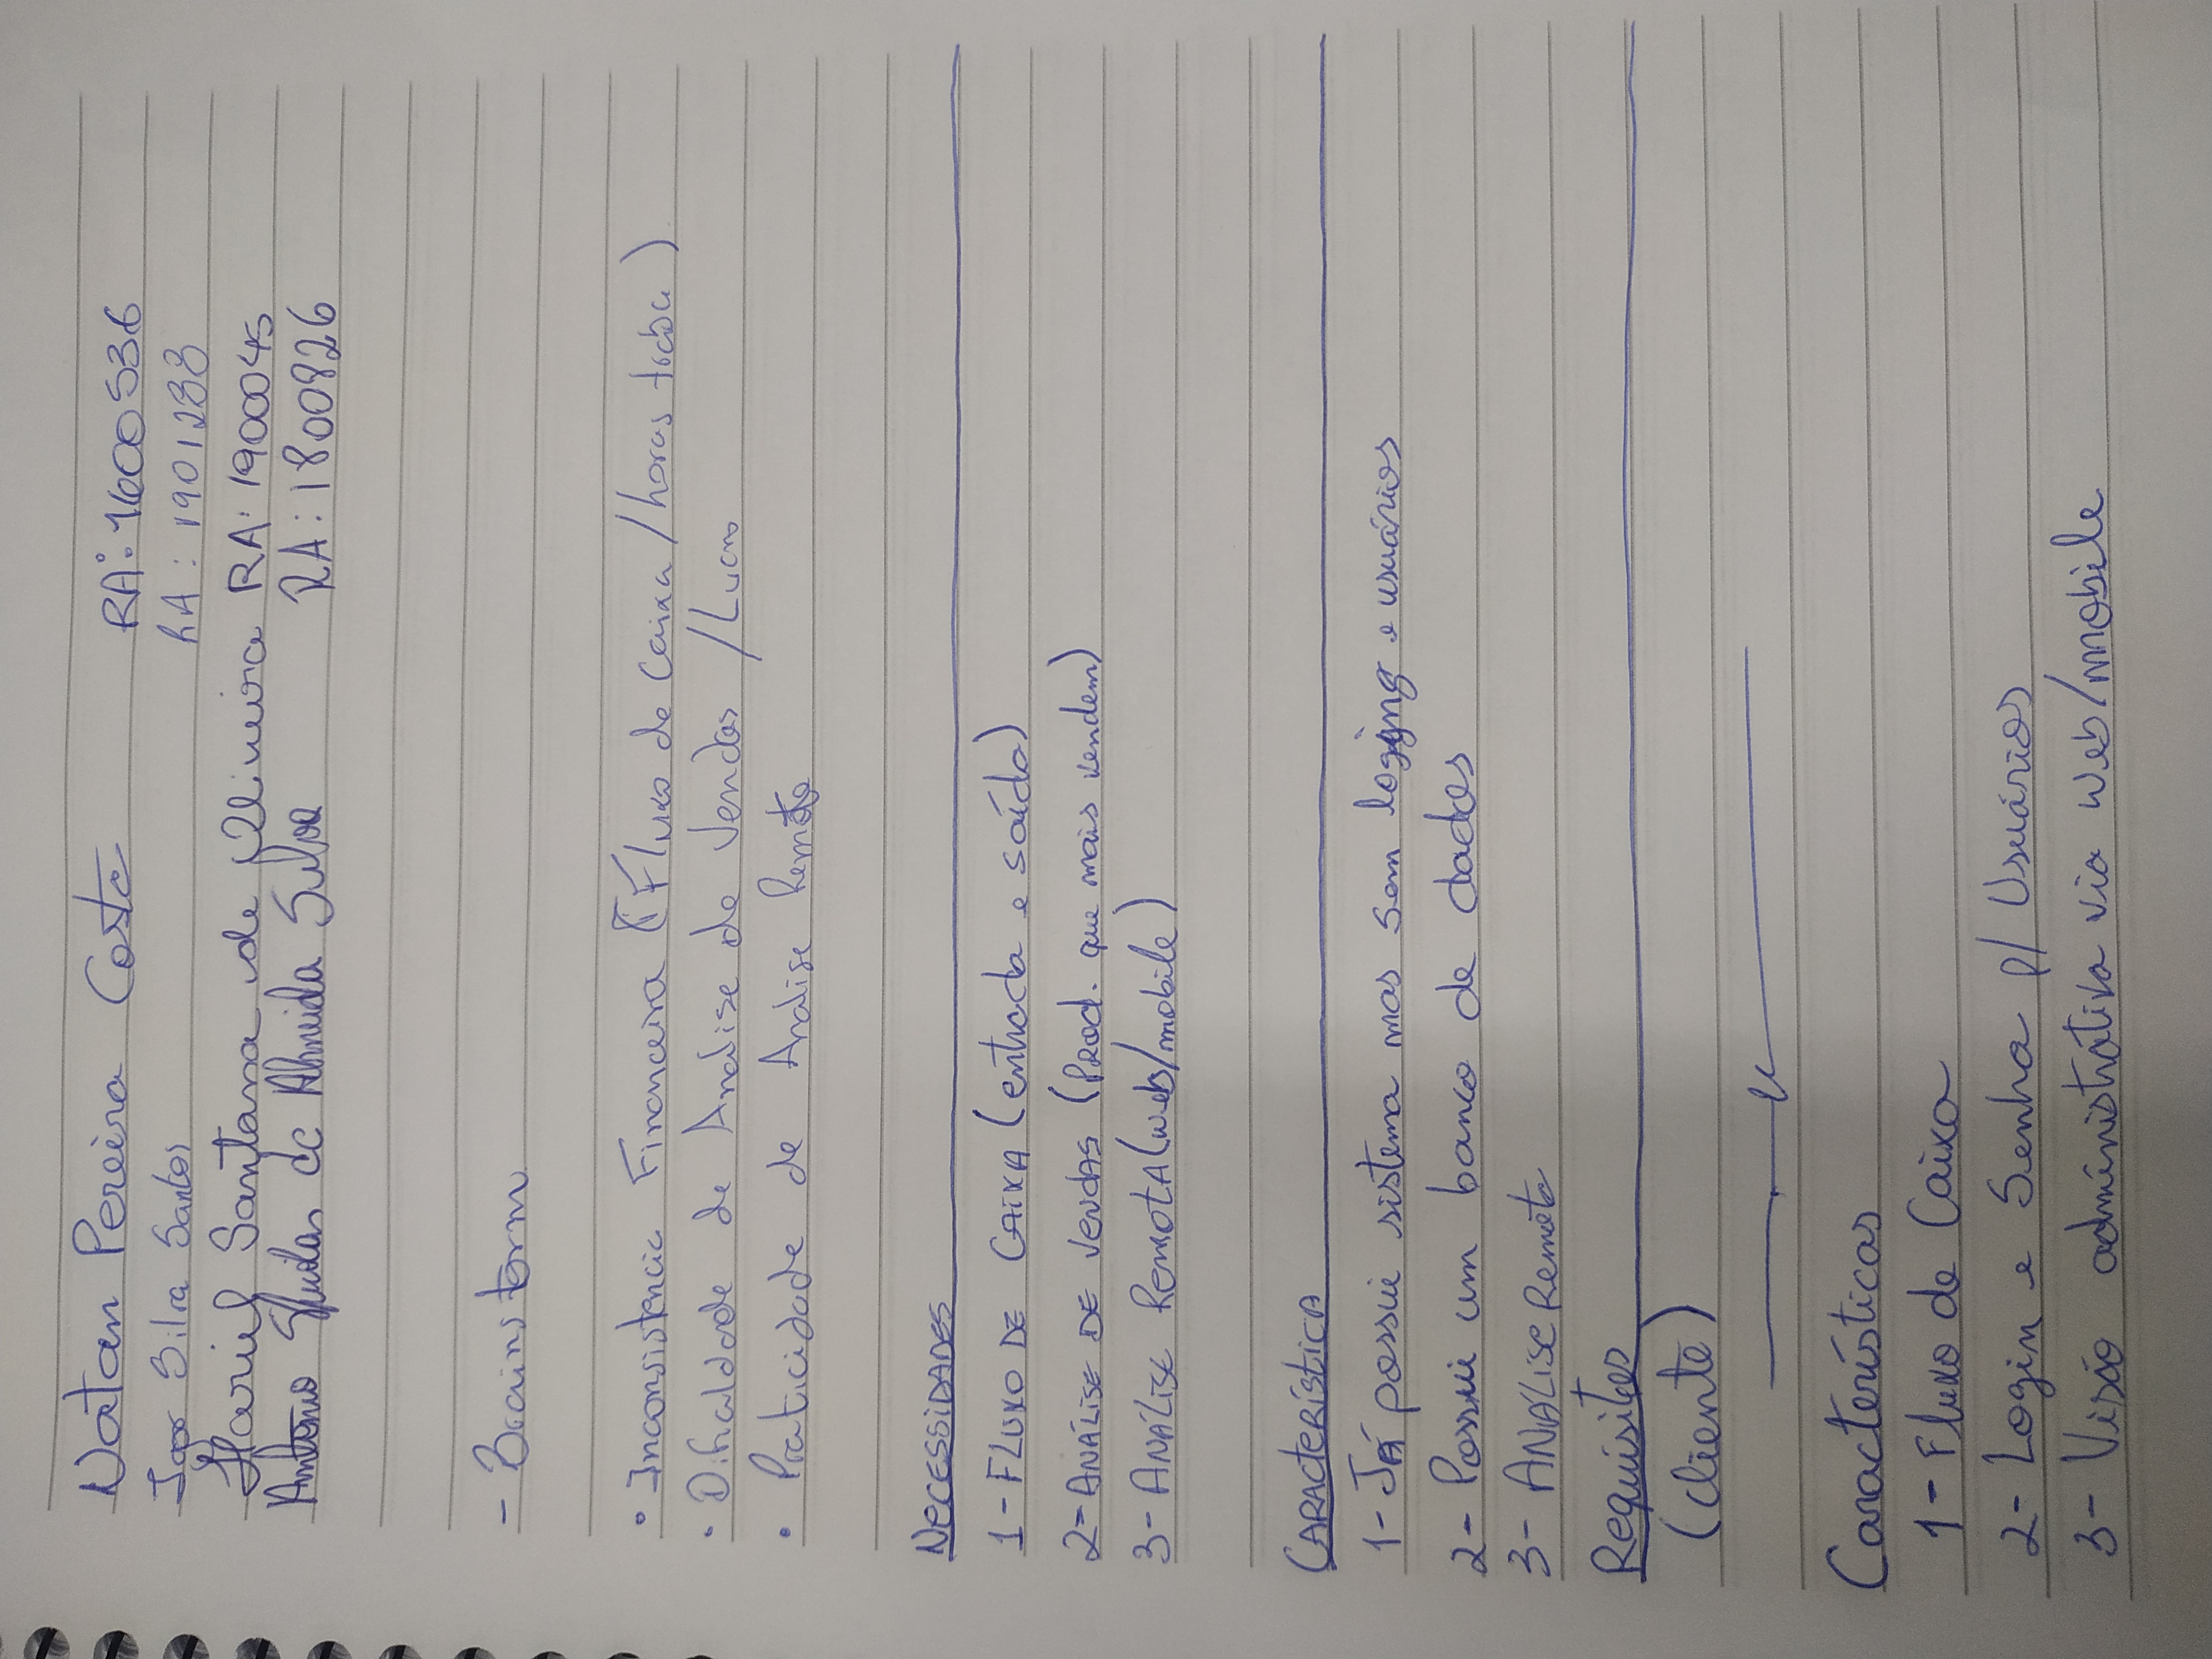 Natan Pereira Costa RA: 1600536
Igor Silva Santos RA: 1901283
Santana de Oliveira RA: 1900045
Antonio de Almeida Silva RA: 1800826
- Brainstorm
• Inconsistencia Financeira (Fluxo de Caixa/horas traba)
• Dificaldade de Analise de Vendas /Lucro
• Praticidade de Analise Remota
NECESSIDADES
1- FLUXO DE CAIXA (entrada e saída)
2- ANÁLISE DE VENDAS (Prod. que mais vendem)
3- ANÁLISE REMOTA (web/mobile)
CARACTERÍSTICA
1- JÁ possui sistema mas sem e usuários
2- Possui um banco de dados
3- ANÁLISE Remota
Requisitos
(cliente)
Características
1- Fluxo de Caixa
2- Login e Senha p/ Usuários
3- Visão administrativa via Web/mobile